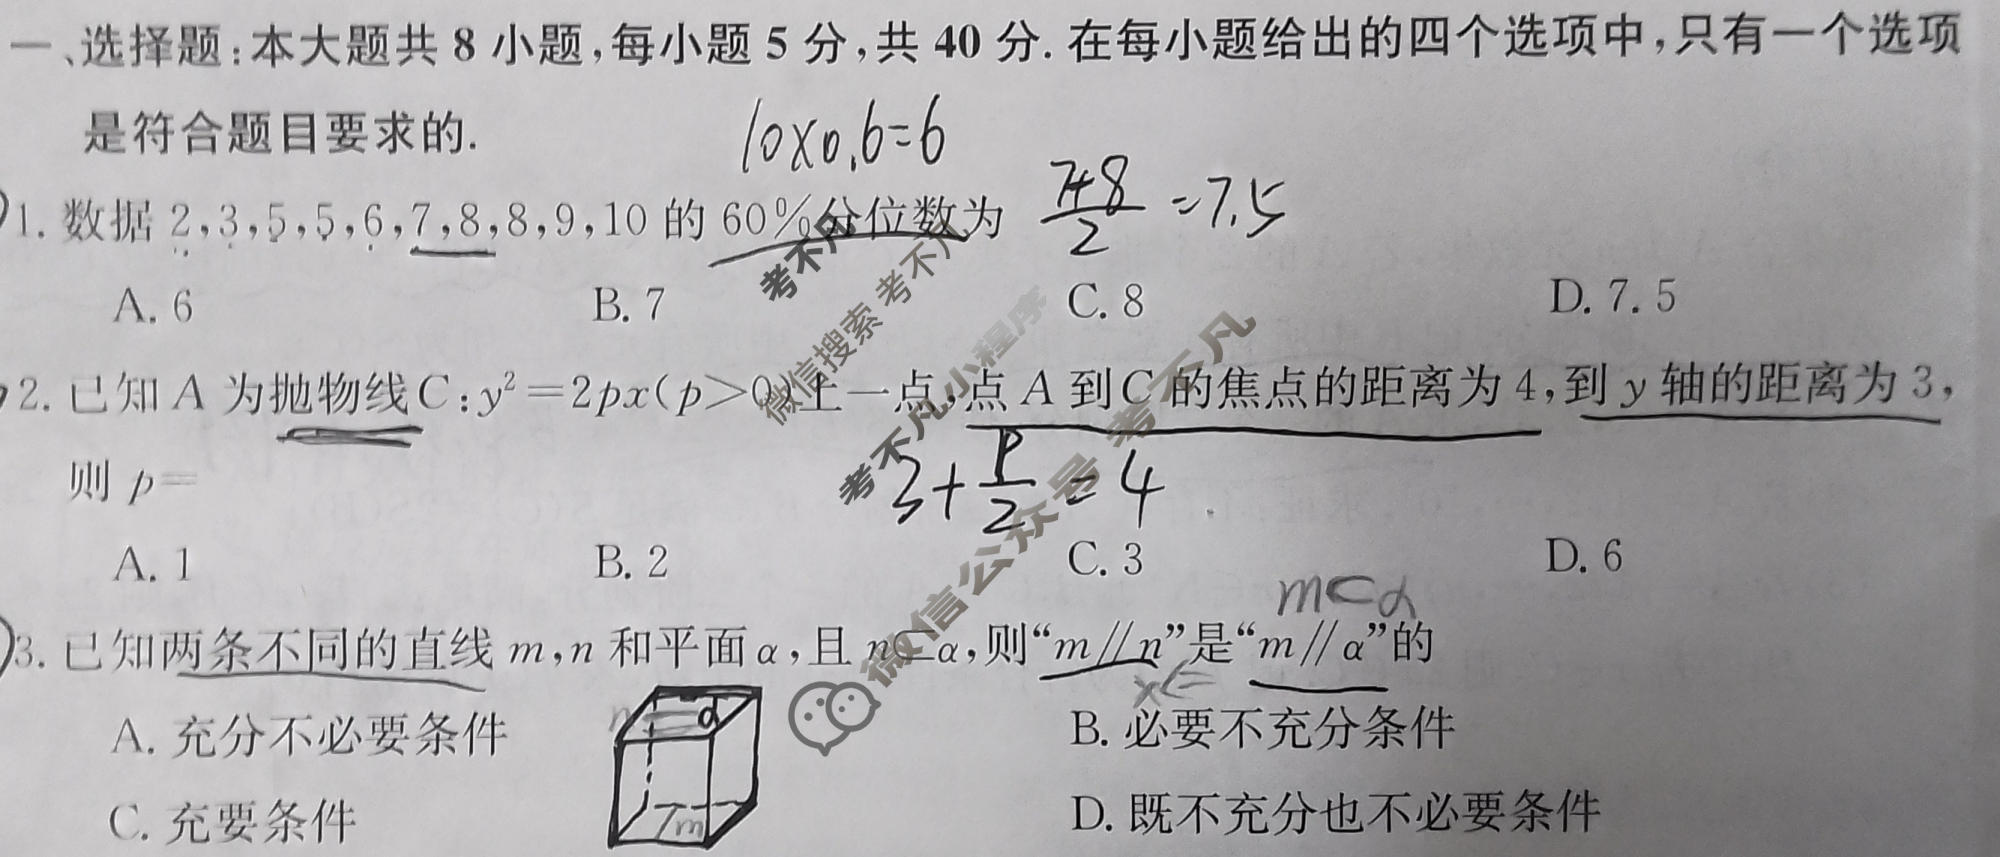 一、选择题:本大题共 8 小题,每小题 5 分,共 40 分. 在每小题给出的四个选项中,只有一个选项
是符合题目要求的.
10×0.6=6
1. 数据 2,3,5,5,6,7,8,8,9,10 的 60%分位数为
7+8/2=7.5
A. 6 B. 7 C. 8 D. 7.5
2. 已知 A 为抛物线 C:y²=2px(p>0)上一点,点 A 到 C 的焦点的距离为 4,到 y 轴的距离为 3,
则 p=
3+P/2=4
A. 1 B. 2 C. 3 D. 6
m⊂α
3. 已知两条不同的直线 m,n 和平面 α,且 n⊂α,则“m∥n”是“m∥α”的
x⇐
A. 充分不必要条件 B. 必要不充分条件
n α
C. 充要条件 D. 既不充分也不必要条件
m
考不凡
微信搜索 考不凡
考不凡小程序
微信公众号 考不凡